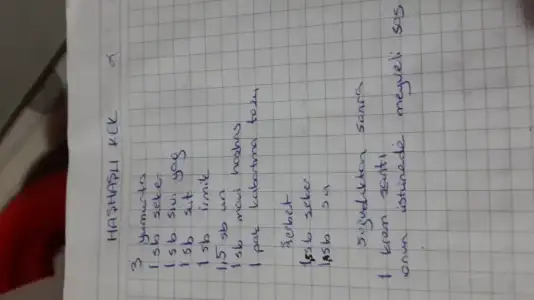 HAŞHAŞLI KEK
3 yumurta
1 sb şeker
1 sb sıvı yağ
1 sb süt
1 sb irmik
1,5 sb un
1 sb mavi haşhaş
1 pak kabartma tozu
Şerbet
1,5 sb şeker
1,5 sb su
Soğuduktan sonra
1 krem şanti
onun üstünede meyveli sos